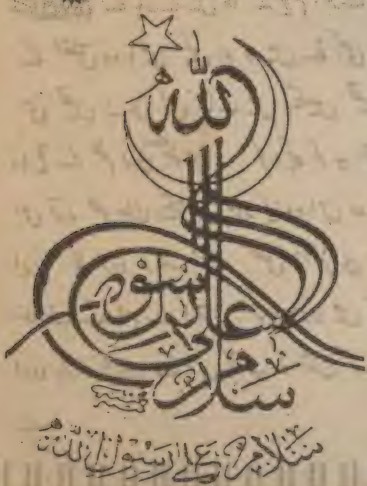 سلام
على رسول
الله
سلام على رسول الله